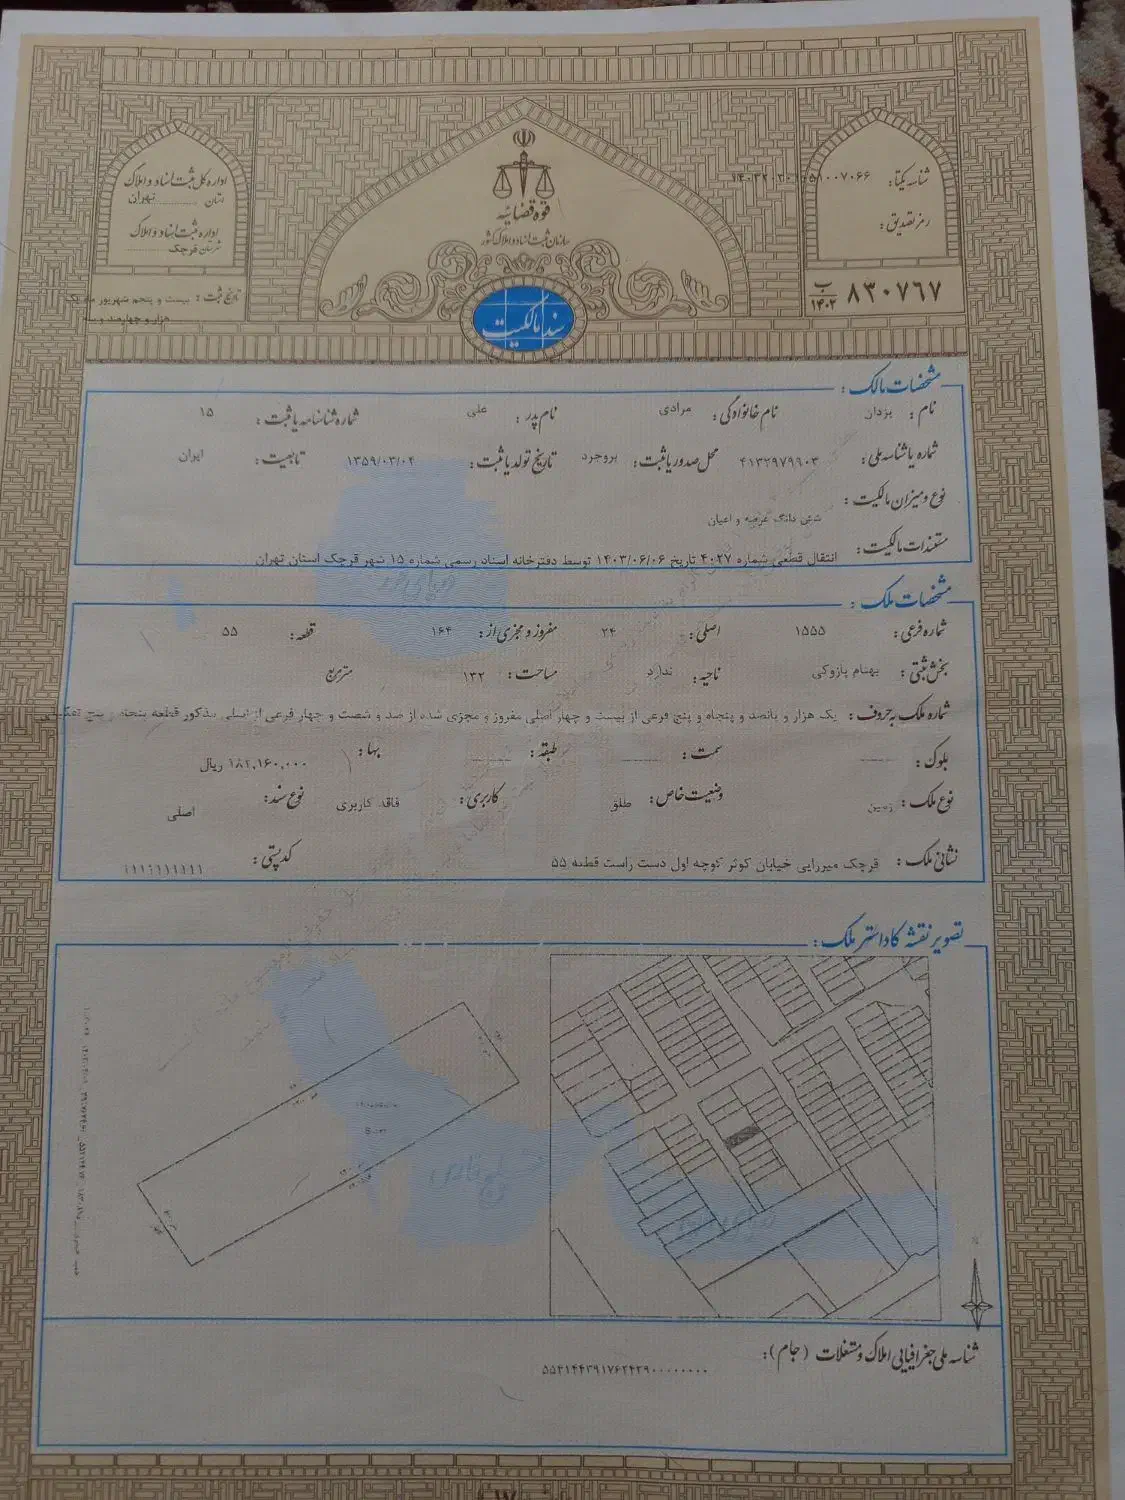 قوه قضائیه
سازمان ثبت اسناد و املاک کشور
سند مالکیت
اداره کل ثبت اسناد و املاک
استان تهران
اداره ثبت اسناد و املاک
شهرستان قرچک
تاریخ ثبت : بیست و پنجم شهریور ماه یک
هزار و چهارصد و سه
شناسه یکتا :
رمز تصدیق :
۸۳۰۷۶۷ ب ۱۴۰۲
مشخصات مالک :
نام : یزدان نام خانوادگی : مرادی نام پدر : علی شماره شناسنامه یا ثبت : ۱۵
شماره یا شناسه ملی : ۴۱۳۲۹۷۹۶۰۳ محل صدور یا ثبت : بروجرد تاریخ تولد یا ثبت : ۱۳۵۹/۰۳/۰۴ تابعیت : ایران
نوع و میزان مالکیت : شش دانگ عرصه و اعیان
مستندات مالکیت : انتقال قطعی شماره ۴۰۲۷ تاریخ ۱۴۰۳/۰۶/۰۶ توسط دفترخانه اسناد رسمی شماره ۱۵ شهر قرچک استان تهران
مشخصات ملک :
شماره فرعی : ۱۵۵۵ اصلی : ۲۴ مفروز و مجزی از : ۱۶۴ قطعه : ۵۵
بخش ثبتی : بهنام پازوکی ناحیه : ندارد مساحت : ۱۳۲ مترمربع
شماره ملک به حروف : یک هزار و پانصد و پنجاه و پنج فرعی از بیست و چهار اصلی مفروز و مجزی شده از صد و شصت و چهار فرعی از اصلی مذکور قطعه پنجاه و پنج
بلوک : سمت : طبقه : بها : ۱۸۲,۱۶۰,۰۰۰ ریال
نوع ملک : زمین وضعیت خاص : طلق کاربری : فاقد کاربری نوع سند : اصلی
نشانی ملک : قرچک میررایی خیابان کوثر کوچه اول دست راست قطعه ۵۵ کد پستی : ۱۱۱۱۱۱۱۱۱۱
تصویر نقشه کاداستر ملک :
شناسه ملی جغرافیایی املاک و مستغلات (جام) :